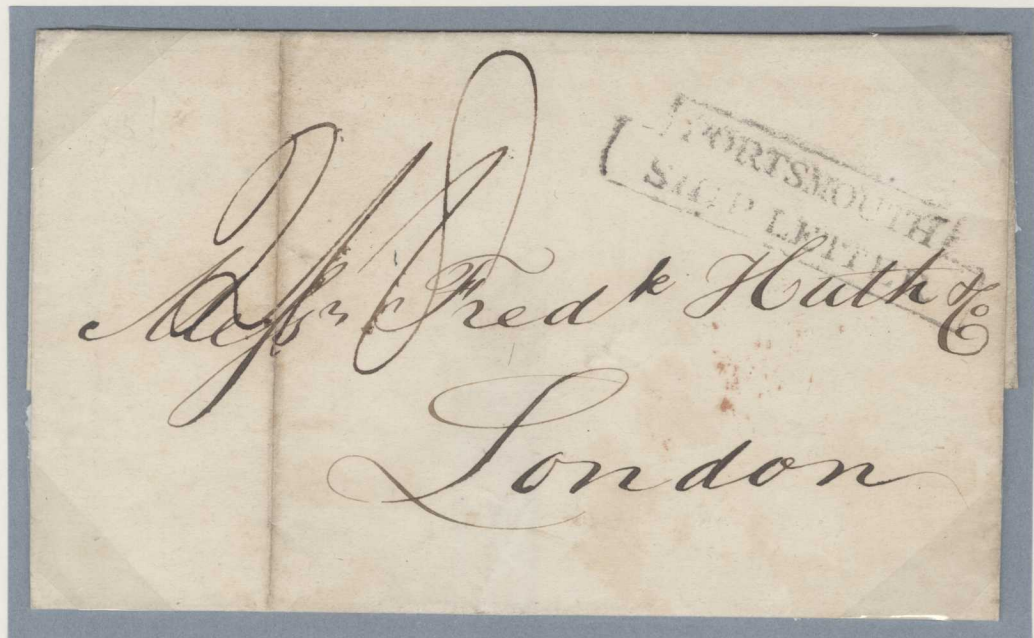 PORTSMOUTH
SHIP LETTER
Messrs Fredk Huth & Co
London